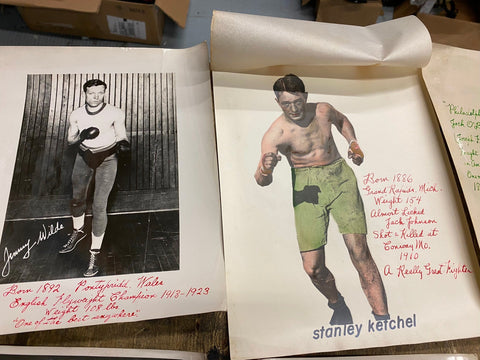 Jimmy Wilde
Born 1892 Pontypridd, Wales
English Flyweight Champion 1913-1923
Weight 108 lbs
"One of the Best anywhere"
Born 1886
Grand Rapids, Mich.
Weight 154
Almost Licked
Jack Johnson
Shot & Killed at
Conway Mo.
1960
A Really Great Fighter
stanley ketchel
"Philadelph
Jack O'B
Fought